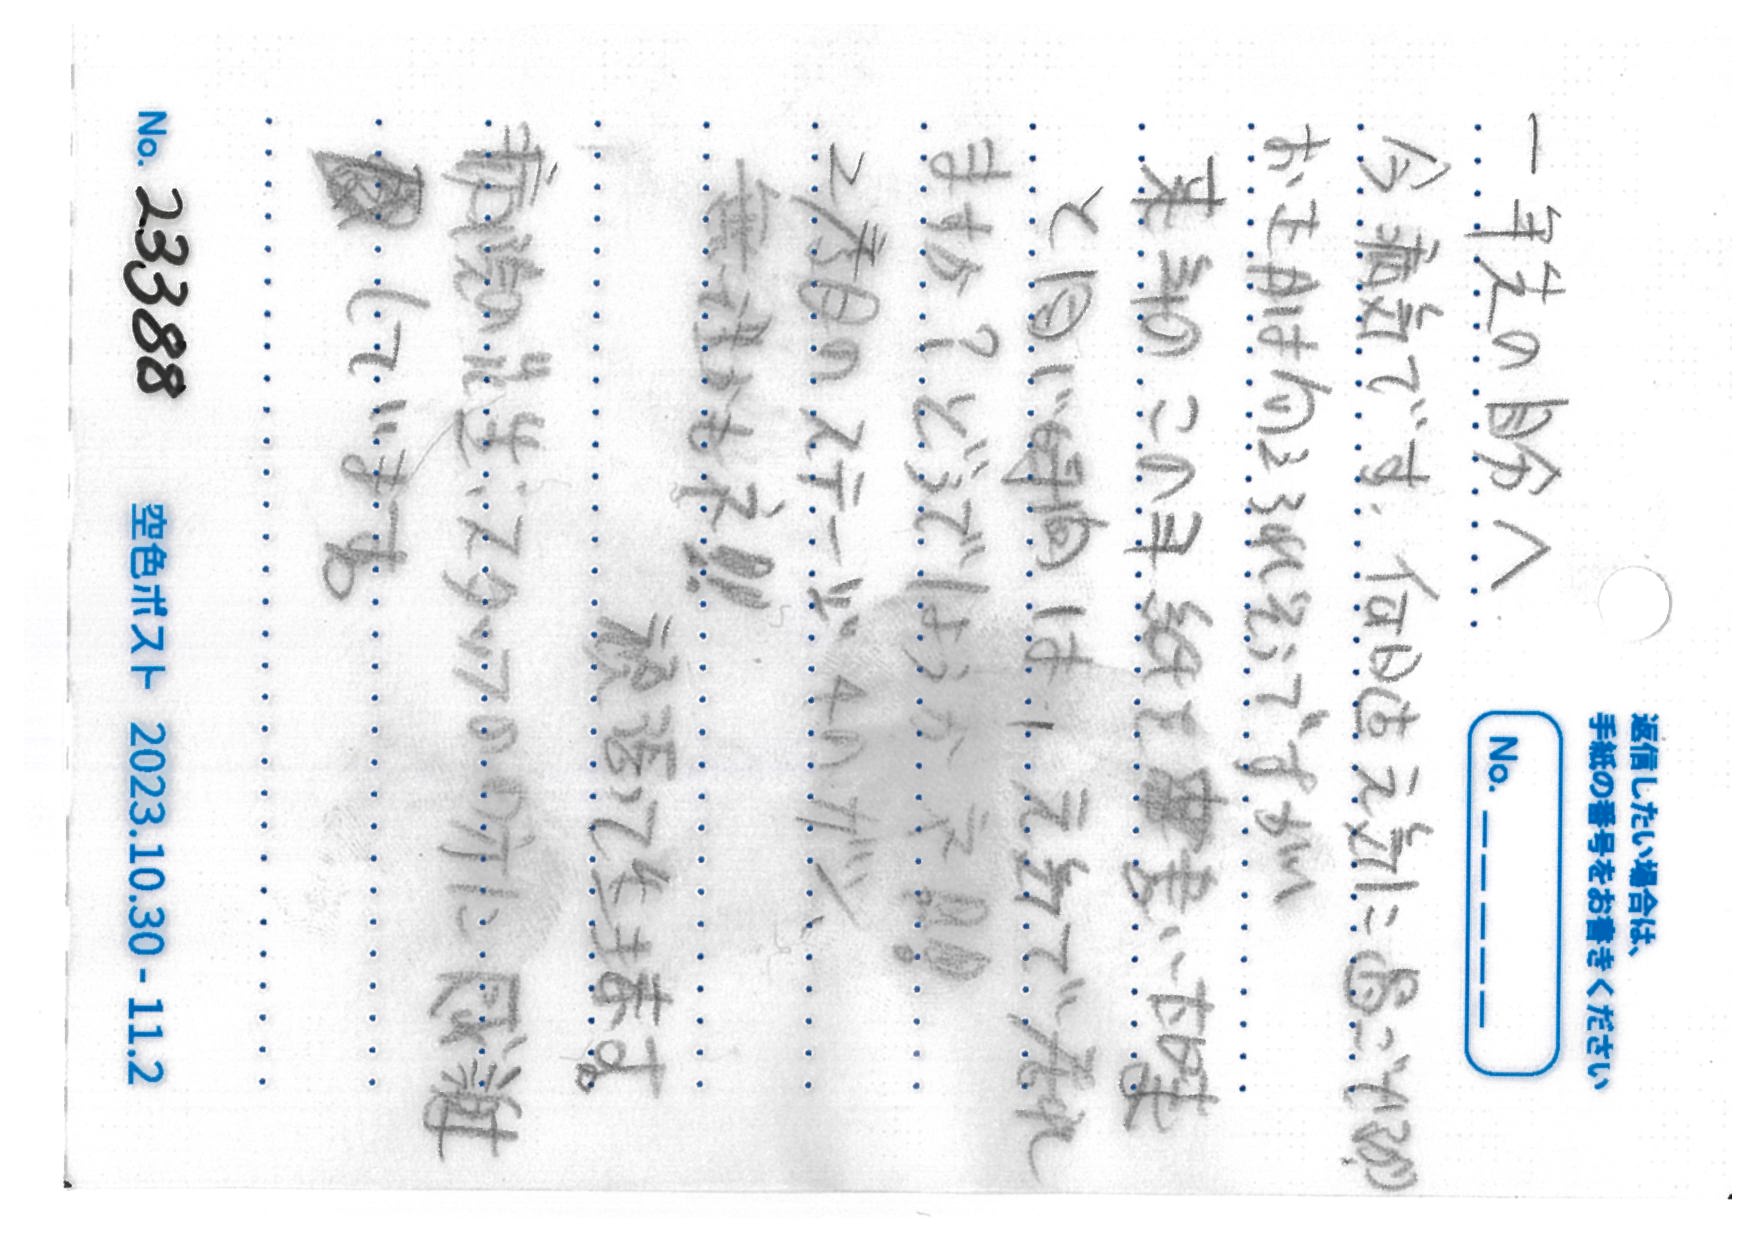 返信したい場合は、
手紙の番号をお書きください
No. _ _ _ _ _
一年先の自分へ
今病気です。何日迄元気に過ごせるか?
お正月は向えられそうですが
来年のこの手紙を書いた時
と同じ時間は、元気で居れ
ますか?どうでしょうかネ!!
2度目のステージ4のガン、
無理かもネ!!
頑張って生きます。
病院の先生、スタッフの方に感謝
しています。
No. 23388
空色ポスト 2023.10.30 - 11.2